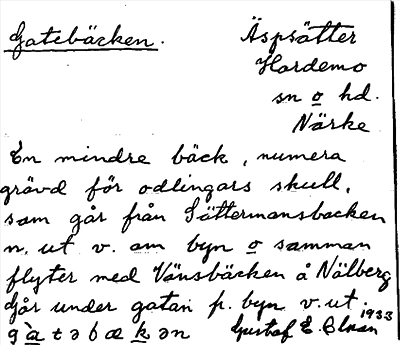 Gatebäcken.
Äspsätter
Hardemo
sn o hd.
Närke
En mindre bäck, numera
grävd för odlingars skull,
som går från Sättermansbacken
n. ut v. om byn o samman
flyter med Vänsbäcken å Nälberg
Går under gatan p. byn v. ut.
1933
g a t ə b æ k ə n Gustaf E.